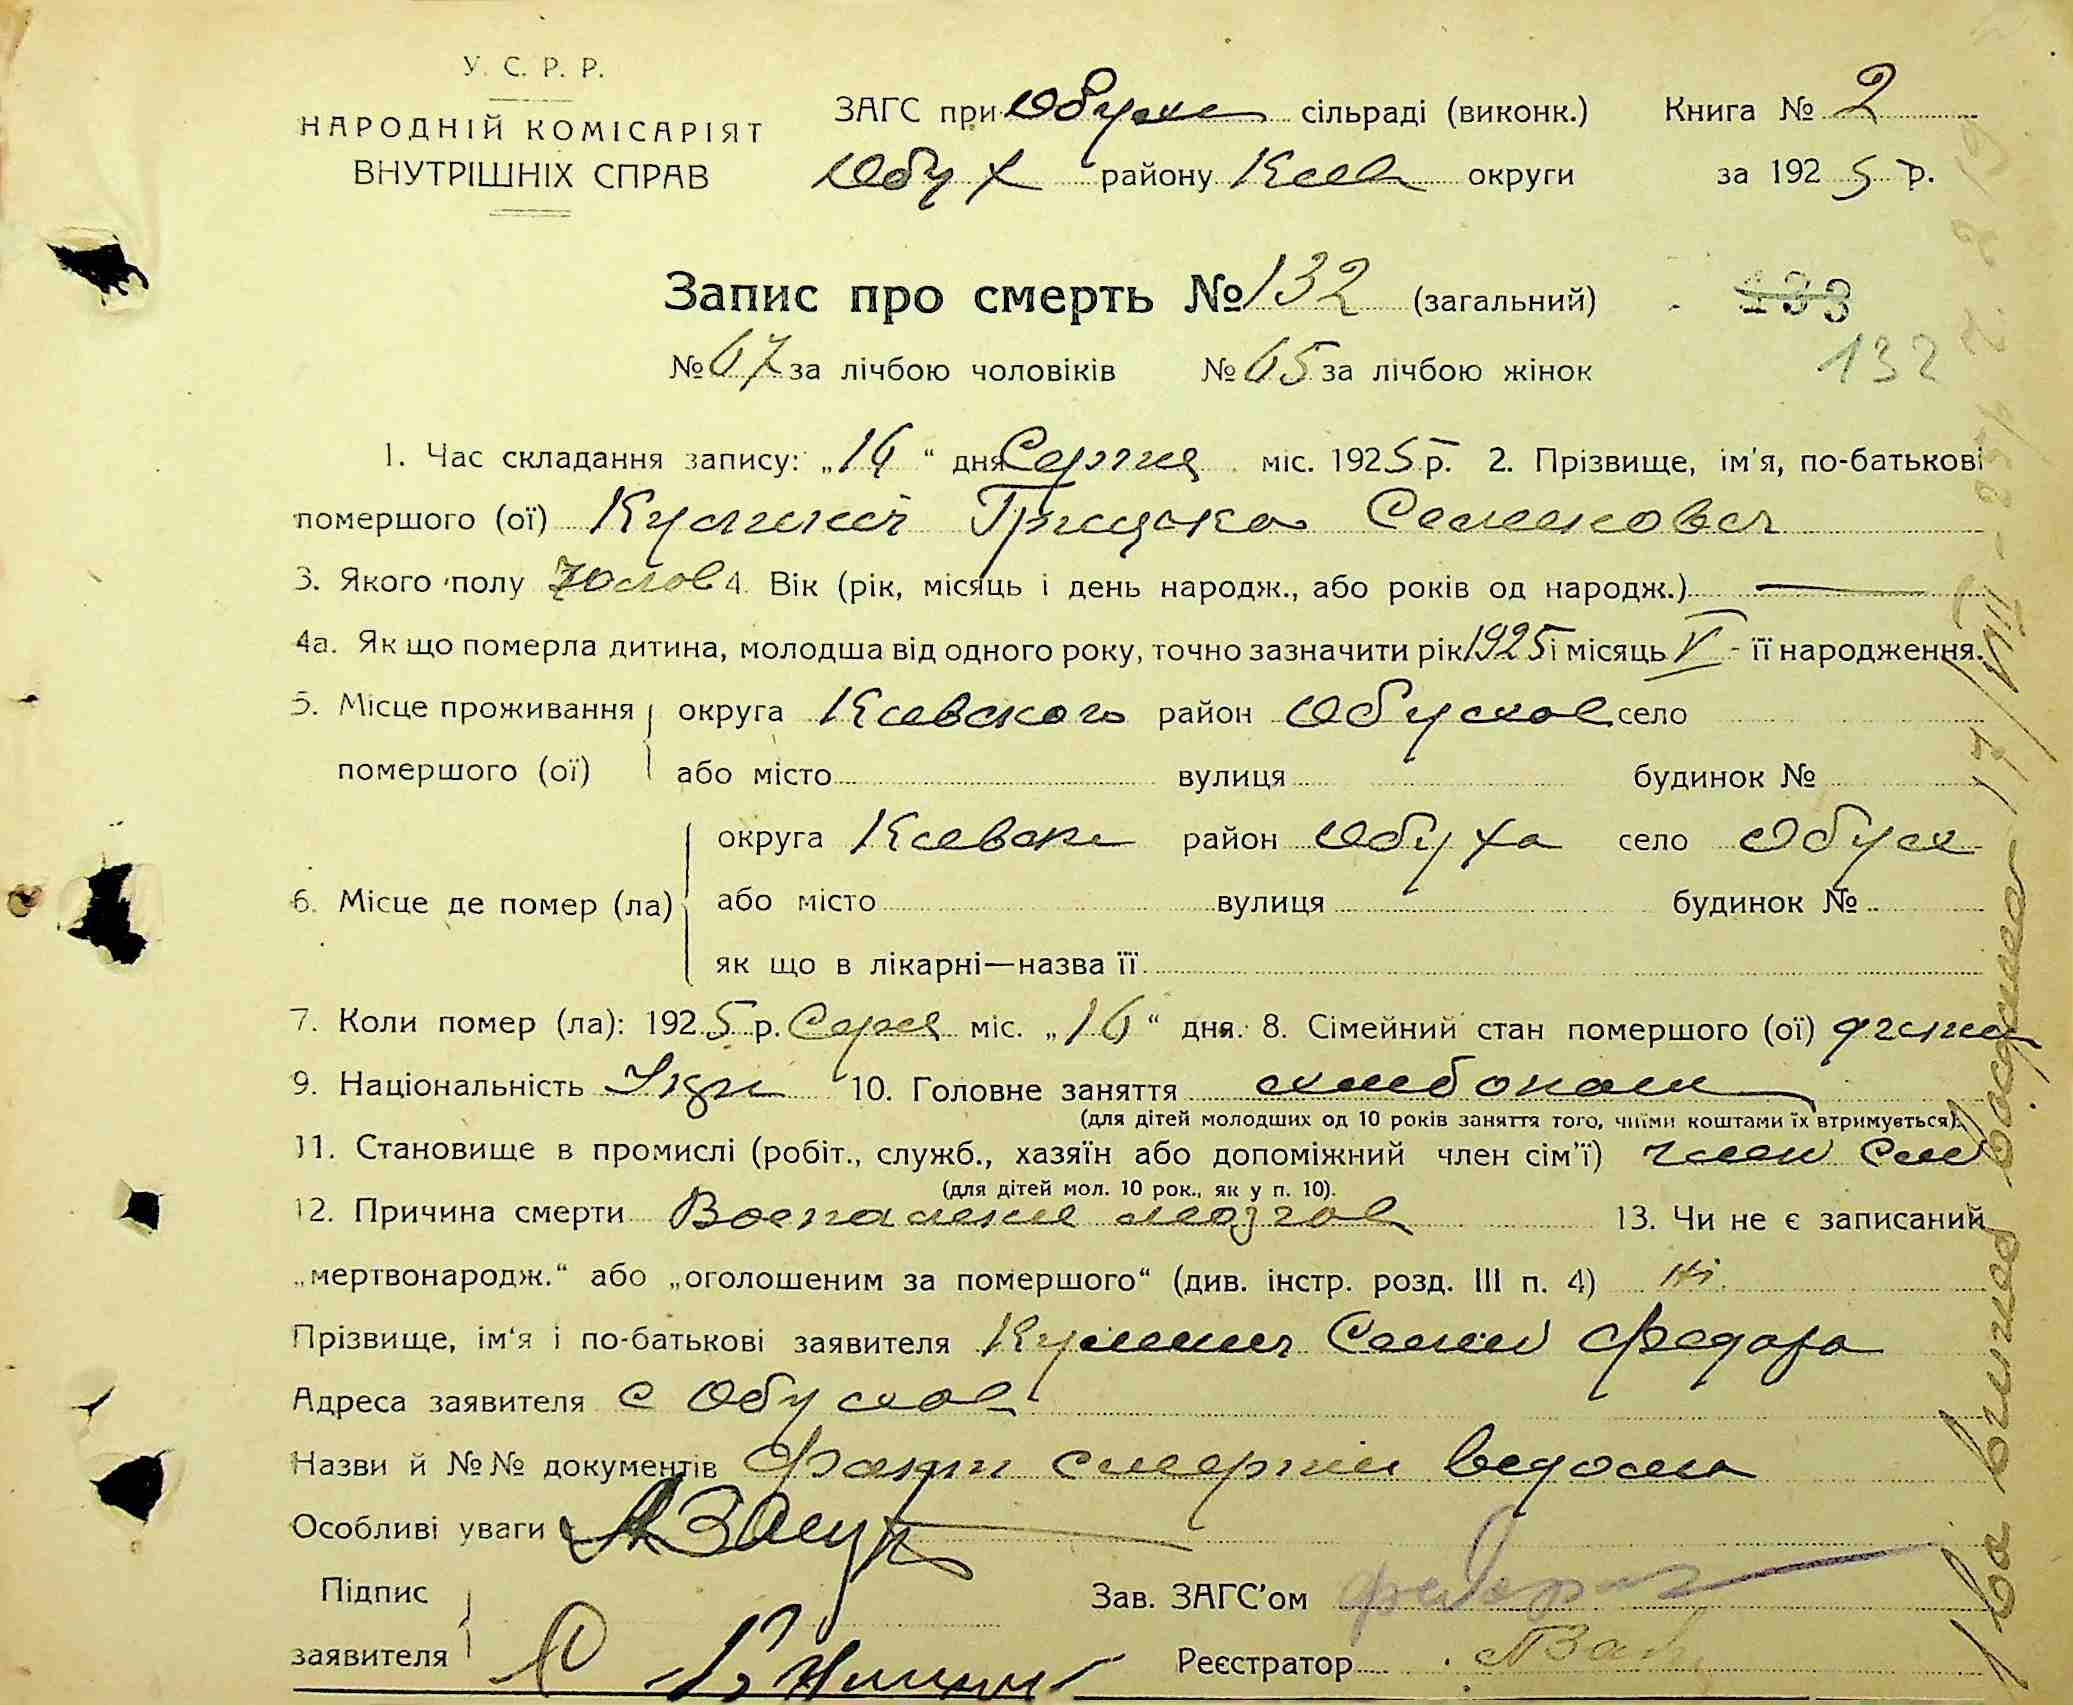 У. С. Р. Р.
НАРОДНІЙ КОМІСАРІЯТ
ВНУТРІШНІХ СПРАВ
ЗАГС при сільраді (виконк.) Книга № 2
Обух району Киев округи за 1925 р.
Запис про смерть № 132 (загальний) 133
№ 67 за лічбою чоловіків № 65 за лічбою жінок 132
1. Час складання запису: „16“ дня Серпня міс. 1925 р. 2. Прізвище, ім'я, по-батькові
помершого (ої) Грицько Семенович
3. Якого полу Чолов 4. Вік (рік, місяць і день народж., або років од народж.) —
4а. Як що померла дитина, молодша від одного року, точно зазначити рік 1925 і місяць V - її народження.
5. Місце проживання округа Киевского район Обухов село
помершого (ої) або місто вулиця будинок №
округа Киевск район Обуха село Обух
6. Місце де помер (ла) або місто вулиця будинок №
як що в лікарні—назва її
7. Коли помер (ла): 1925 р. Серпня міс. „16“ дня. 8. Сімейний стан помершого (ої)
9. Національність Укр 10. Головне заняття
(для дітей молодших од 10 років заняття того, чиїми коштами їх втримується).
11. Становище в промислі (робіт., служб., хазяїн або допоміжний член сім'ї) член сем
(для дітей мол. 10 рок., як у п. 10).
12. Причина смерти Воспаление мозгов 13. Чи не є записаний
„мертвонародж.“ або „оголошеним за помершого“ (див. інстр. розд. III п. 4) ні
Прізвище, ім'я і по-батькові заявителя Семен Федора
Адреса заявителя с Обухов
Назви й №№ документів Факт смерти
Особливі уваги
Підпис
заявителя
Зав. ЗАГС'ом
Реєстратор